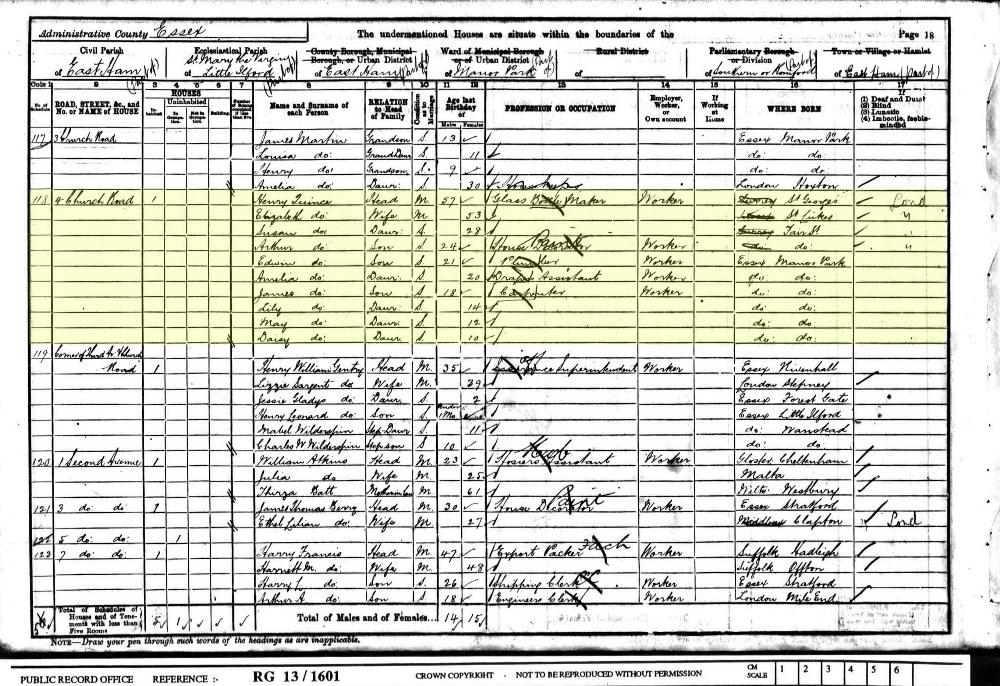 Administrative County Essex The undermentioned Houses are situate within the boundaries of the Page 18
Civil Parish Ecclesiastical Parish County Borough, Municipal Borough, or Urban District Ward of Municipal Borough or of Urban District Rural District Parliamentary Borough or Division Town or Village or Hamlet
of East Ham (Part of) of St Mary the Virgin Little Ilford (Part of) of East Ham (Part of) of Manor Park (Part of) of of Southern or Romford (Part of) of East Ham (Part of)
Cols 1 2 3 4 5 6 7 8 9 10 11 12 13 14 15 16 17
No. of Schedule ROAD, STREET, &c., and No. or NAME of HOUSE HOUSES In-habited Uninhabited In Occupation Not in Occupation Building Name and Surname of each Person RELATION to Head of Family Condition as to Marriage Age last Birthday of Males Females PROFESSION OR OCCUPATION Employer, Worker, or Own account If Working at Home WHERE BORN If (1) Deaf and Dumb (2) Blind (3) Lunatic (4) Imbecile, feeble-minded
117 3 Church Road James Martin Grandson S. 13 Essex Manor Park
Louisa do: GrandDaur S. 11 do: do:
Henry do: Grandson S. 9 do: do:
Amelia do: Daur S. 30 Housekeeper London Hoxton
118 4 Church Road 1 Henry Quince Head M. 57 Glass Bottle Maker Worker Surrey St Georges Lond
Elizabeth do: Wife M. 53 St Lukes "
Susan do: Daur S. 28 Surrey Fair St "
Arthur do: Son S. 24 House Worker do: do: "
Edwin do: Son S. 21 Plumber Worker Essex Manor Park
Amelia do: Daur S. 20 Drapers Assistant Worker do: do:
James do: Son S. 18 Carpenter Worker do: do:
Lily do: Daur S. 14 do: do:
May do: Daur S. 12 do: do:
Daisy do: Daur S. 10 do: do:
119 Corner of Third &
Road 1 Henry William Gentry Head M. 35 Superintendent Worker Essex Rivenhall
Lizzie Sargent do Wife M. 39 London Stepney
Jessie Gladys do: Daur S. 2 Essex Forest Gate
Henry Leonard do: Son S. under 1 Mo Essex Little Ilford
Mabel Wilderspin Step-Daur S. 11 do: Wanstead
Charles W. Wilderspin Stepson S 10 do: do:
120 1 Second Avenue 1 William Atkins Head M. 23 Hosiers Assistant Worker Gloster Cheltenham
Julia do Wife M. 25 Malta
Thirza Batt Mother in law M. 61 Wilts Westbury
121 3 do: do: 1 James Thomas Berry Head M. 30 House Decorator Worker Essex Stratford
Ethel Lilian do: Wife M. 27 Middlesex Clapton Lond
5 do: do: 1
7 do: do: 1 Harry Francis Head M. 47 Export Packer Worker Suffolk Hadleigh
Harriett M. do: Wife M. 48 Suffolk Offton
Harry L. do: Son S. 26 Shipping Clerk Worker Essex Stratford
Arthur A. do: Son S. 18 Engineers Clerk Worker London Mile End
Total of Schedules of Houses and of Tenements with less than Five Rooms 5 1 Total of Males and of Females... 14 15
NOTE—Draw your pen through such words of the headings as are inapplicable.
PUBLIC RECORD OFFICE REFERENCE :- RG 13 / 1601 CROWN COPYRIGHT - NOT TO BE REPRODUCED WITHOUT PERMISSION CM SCALE 1 2 3 4 5 6